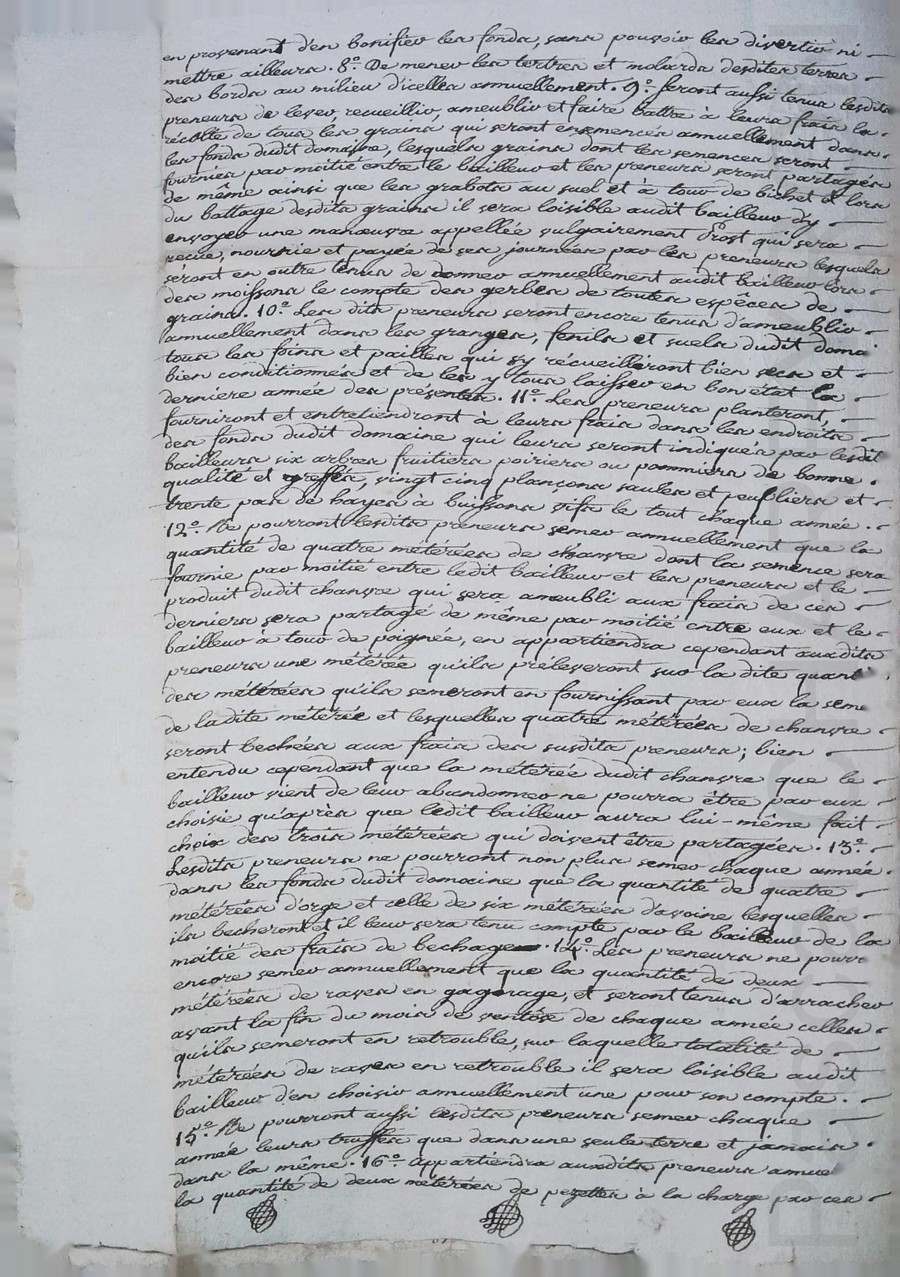 en provenant d'en bonifier les fonds, sans pouvoir les divertir ni
mettre ailleurs. 8°. De mener les tertres et molards desdites terres
des bords au milieu d'icelles annuellement. 9°. seront aussi tenus lesdits
preneurs de lever, recueillir, ameublir et faire battre à leurs frais la
récolte de tous les grains qui seront ensemencés annuellement dans
les fonds dudit domaine, lesquels grains dont les semences seront
fournies par moitié entre le bailleur et les preneurs seront partagés
de même ainsi que les grabots au suel et à tour de bichet et lors
du battage desdits grains il sera loisible audit bailleur d'y
envoyer une manœuvre appellée vulgairement Prost qui sera
reçue, nourrie et payée de ses journées par les preneurs lesquels
seront en outre tenus de donner annuellement audit bailleur lors
des moissons le compte des gerbes de toutes espèces de
grains. 10°. Les dits preneurs seront encore tenus d'ameublir
annuellement dans les granges, fenils et suels dudit doma
tous les foins et pailles qui s'y recueilleront bien secs et
bien conditionnés et de les y tous laisser en bon état la
derniere année des présentes. 11°. Les preneurs planteront,
fourniront et entretiendront à leurs frais dans les endroits
des fonds dudit domaine qui leurs seront indiqués par lesdit
bailleurs six arbres fruitiers poiriers ou pommiers de bonne
qualité et greffés, vingt cinq plançons saules et peupliers et
trente pas de hayes à buissons vifs le tout chaque année.
12°. Ne pourront lesdits preneurs semer annuellement que la
quantité de quatre métérées de chanvre dont la semence sera
fournie par moitié entre ledit bailleur et les preneurs et le
produit dudit chanvre qui sera ameubli aux frais de ces
derniers sera partagé de même par moitié entre eux et le
bailleur à tour de poignée, en appartiendra cependant auxdits
preneurs une métérée qu'ils préleveront sur la dite quant
des métérées qu'ils semeront en fournissant par eux la seme
de la dite métérée et lesquelles quatre métérées de chanvre
seront bechées aux frais des susdits preneurs; bien
entendu cependant que la métérée dudit chanvre que le
bailleur vient de leur abandonner ne pourra être par eux
choisie qu'après que ledit bailleur aura lui-même fait
choix des trois métérées qui doivent être partagées. 13°.
Lesdits preneurs ne pourront non plus semer chaque année
dans les fonds dudit domaine que la quantité de quatre
métérées d'orge et celle de six métérées d'avoine lesquelles
ils becheront et il leur sera tenu compte par le bailleur de la
moitié des frais de bechage. 14°. Les preneurs ne pourr
encore semer annuellement que la quantité de deux
métérées de raves en gagnage, et seront tenus d'arracher
avant la fin du mois de ventôse de chaque année celles
qu'ils semeront en retrouble, sur laquelle totalité de
métérées de raves en retrouble il sera loisible audit
bailleur d'en choisir annuellement une pour son compte.
15°. Ne pourront aussi lesdits preneurs semer chaque
année leurs truffes que dans une seule terre et jamais
dans la même. 16°. appartiendra auxdits preneurs annue
la quantité de deux métérées de pezettes à la charge par ces